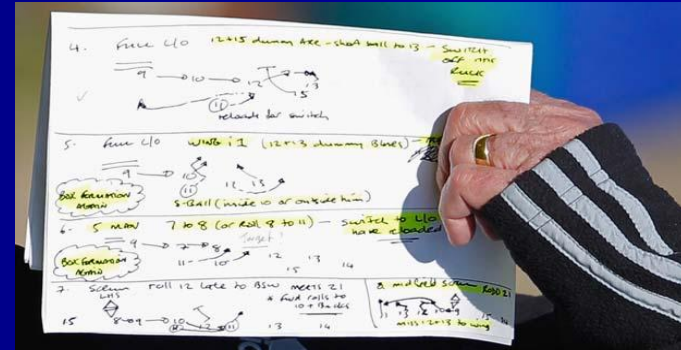 4. Full L/O 12+15 dummy Axe - short ball to 13 - Switch
off
Ruck
9 10 12 13
15
11
reloads for switch
5. Full L/O Wing i 1 (12+13 dummy Blues) -
9 10
11 12 13
Box Formation
Again
8-Ball (inside 10 or outside him)
6. 5 Man 7 to 8 (or Roll 8 to 11) - Switch to L/O
have reloaded
Target!
9 7 8
11 10 12 13
15 14
Box Formation
Again
7. Scrum roll 12 late to BSW meets 21
LHS
& fwd rolls to
15 8 9 10 12 11 13 14
8 midfield Scrum
miss 12+13 to wing